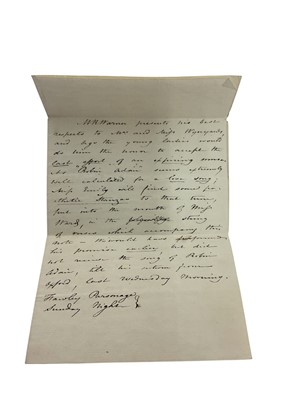 Mr Warner presents his best
respects to Mrs and Miss Wynyards
and begs the young ladies would
do him the honor to accept the
last effort of an expiring muse.
As Robin Adair seems extremely
well calculated for a love song,
Miss Emily will find some
Stanzas to that tune,
put into the mouth of Miss
Ward, in the string
of verses which accompany this
note – He would have
his promise earlier, but did
not receive the song of Robin
Adair, till his return from
Oxford, last Wednesday Morning.
Parsonage
Sunday Night